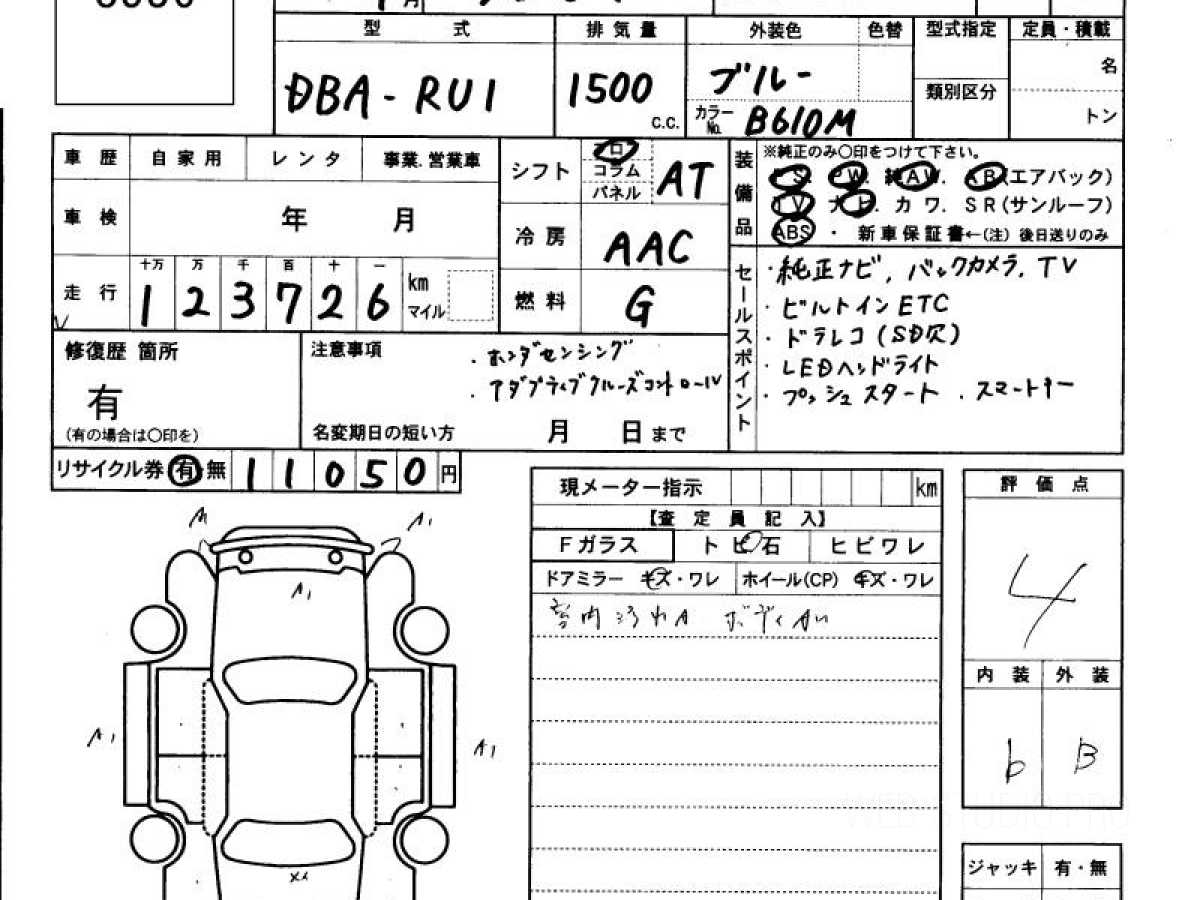 型 式 排 気 量 外装色 色替 型式指定 定員・積載
DBA-RU1 1500 c.c. ブルー カラーNo. B610M 類別区分 名 トン
車 歴 自 家 用 レ ン タ 事業.営業車
車 検 年 月
走 行 十万 万 千 百 十 一
1 2 3 7 2 6 km マイル
シフト コラム パネル AT
冷 房 AAC
燃 料 G
装備品 ※純正のみ〇印をつけて下さい。
PS. PW. 純AW. AB(エアバック)
TV. ナビ. カ ワ. SR(サンルーフ)
ABS ・ 新車保証書←(注) 後日送りのみ
セールスポイント
・純正ナビ, バックカメラ, TV
・ビルトインETC
・ドラレコ(SD欠)
・LEDヘッドライト
・プッシュスタート .スマートキー
修復歴 箇所
有
(有の場合は〇印を)
注意事項
・ホンダセンシング
・アダプティブクルーズコントロール
名変期日の短い方 月 日 まで
リサイクル券 有 無 1 1 0 5 0 円
現メーター指示 km
【査 定 員 記 入】
Fガラス ト ビ 石 ヒ ビ ワ レ
ドアミラー キズ・ワレ ホイール(CP) キズ・ワレ
室内汚れA
評 価 点
4
内 装 外 装
b B
ジャッキ 有・無
A1
A1
A1
A1
WEB-STUDIO.PRO